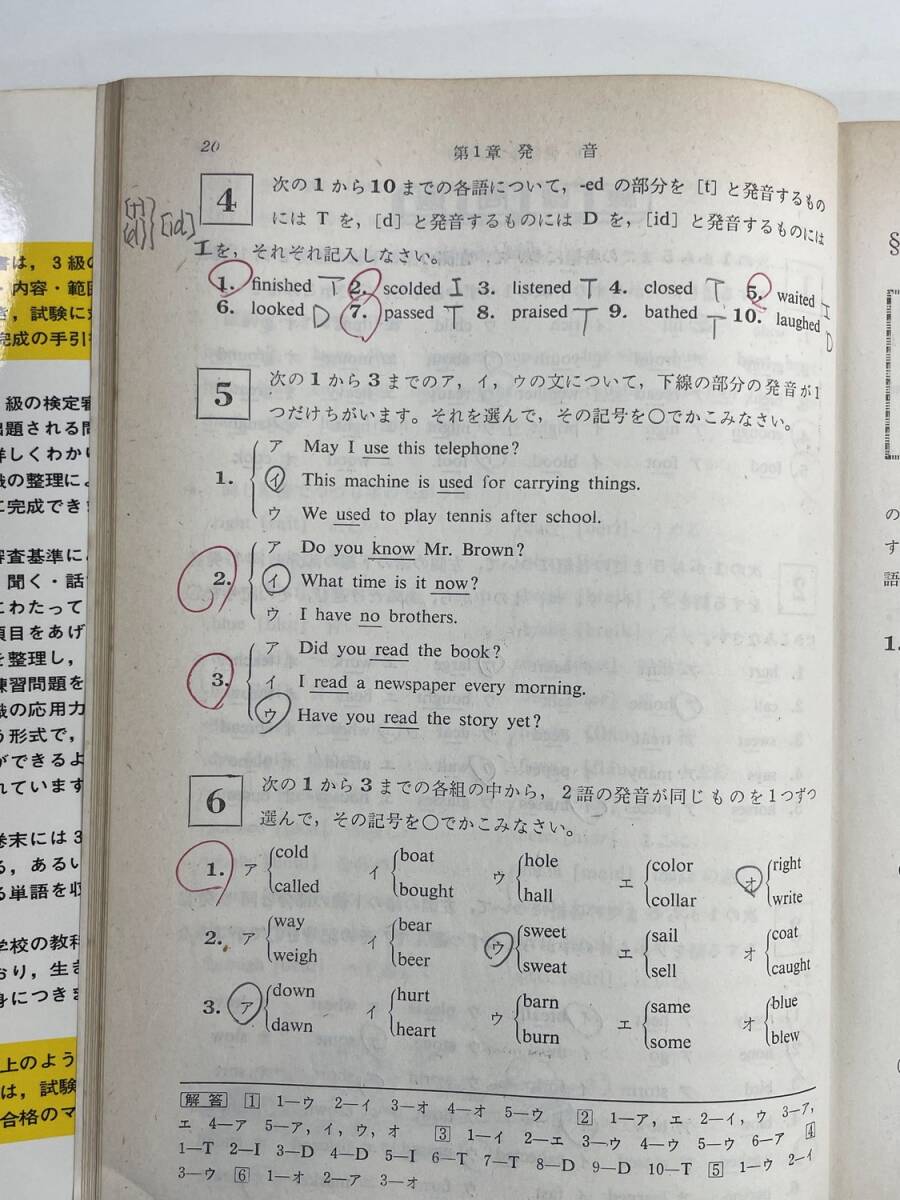 20 第1章 発 音
4 次の1から10までの各語について，-ed の部分を [t] と発音するもの
にはTを，[d] と発音するものにはDを，[id] と発音するものには
Iを，それぞれ記入しなさい。
[t] [d] [id]
1. finished T 2. scolded I 3. listened T 4. closed T 5. waited I
6. looked D 7. passed T 8. praised T 9. bathed T 10. laughed D
5 次の1から3までのア，イ，ウの文について，下線の部分の発音が1
つだけちがいます。それを選んで，その記号を○でかこみなさい。
1. ア May I use this telephone?
イ This machine is used for carrying things.
ウ We used to play tennis after school.
2. ア Do you know Mr. Brown?
イ What time is it now?
ウ I have no brothers.
3. ア Did you read the book?
イ I read a newspaper every morning.
ウ Have you read the story yet?
6 次の1から3までの各組の中から，2語の発音が同じものを1つずつ
選んで，その記号を○でかこみなさい。
1. ア cold called イ boat bought ウ hole hall エ color collar オ right write
2. ア way weigh イ bear beer ウ sweet sweat エ sail sell オ coat caught
3. ア down dawn イ hurt heart ウ barn burn エ same some オ blue blew
解答 1 1―ウ 2―イ 3―オ 4―オ 5―ウ 2 1―ア，エ 2―イ，ウ 3―ア，
エ 4―ア 5―ア，イ，ウ，オ 3 1―イ 2―エ 3―ウ 4―ウ 5―ウ 6―ア 4
1―T 2―I 3―D 4―D 5―I 6―T 7―T 8―D 9―D 10―T 5 1―ウ 2―イ
3―ウ 6 1―オ 2―ア 3―オ
書は，3級の
・内容・範囲
き，試験に
完成の手引
級の検定
出題される問
詳しくわかり
識の整理によ
に完成でき
審査基準に
聞く・話
にわたって
項目をあげ
を整理し，
練習問題を
識の応用力
う形式で，
ができるよ
れています
巻末には3
る，あるい
る単語を収
学校の教科
おり，生き
身につきま
上のよう
は，試験
合格のマ
§
の
す
語
1.